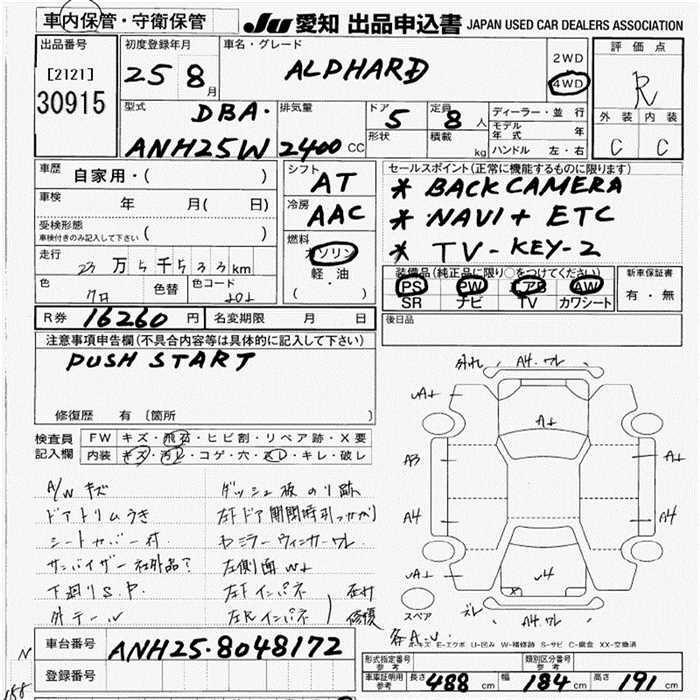 車内保管・守衛保管
JU 愛知 出品申込書 JAPAN USED CAR DEALERS ASSOCIATION
出品番号
[2121]
30915
初度登録年月
25年8月
車名・グレード
ALPHARD
2WD
4WD
評価点
R
外装 内装
C C
型式
DBA・
ANH25W
排気量
2400CC
ドア
5
形状
定員
8人
積載
kg
ディーラー・並行
モデル年式 年
ハンドル 左・右
車歴
自家用・( )
車検
年 月( 日)
受検形態
車検付きのみ記入して下さい ( )
走行
23万5千533km
色
クロ
色替
色コード
202
シフト
AT
冷房
AAC
燃料
ガソリン
軽・油
( )
セールスポイント(正常に機能するものに限ります)
* BACK CAMERA
* NAVI + ETC
* TV-KEY-2
装備品(純正品に限り○をつけてください)
PS PW エアB AW
SR ナビ TV カワシート
新車保証書
有・無
R券 16260円
名変期限 月 日
後日品
注意事項申告欄(不具合内容等は具体的に記入して下さい)
PUSH START
修復歴 有(箇所 )
検査員記入欄
FW キズ・飛石・ヒビ割・リペア跡・X要
内装 キズ・汚レ・コゲ・穴・スレ・キレ・破レ
A/W キズ
ドアトリムうき
シートカバー付
サンバイザー社外品?
下廻りS.P.
外テール
ダッシュ板のり跡
左Fドア開閉時引っかかり
ヤミラーウィンカーワレ
左側面W+
左Fインパネ
左Rインパネ
外れ A4.ワレ
A3
A4
A4
スペア
ズレ
A4.ワレ
各A.U.
A-キズ E-エクボ U-凹み W-補修跡 S-サビ C-腐食 XX-交換済
車台番号
ANH25-8048172
登録番号
型式指定番号
参考
類別区分番号
参考
車庫証明用
参考
長さ 488cm
幅 184cm
高さ 191cm